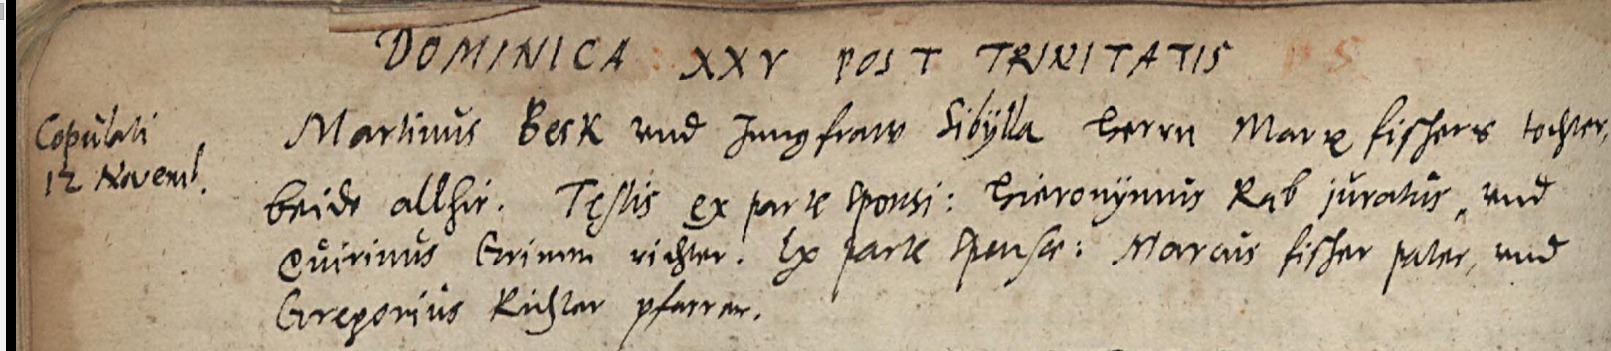 DOMINICA XXV POST TRINITATIS
Copulati Martinus Beck und Jungfraw Sibÿlla Herrn Marx fischers tochter,
12 Novemb. beide allhir. Testis ex parte sponsi: Hieronÿmus Rab juratus, und
Quirinus Grimm richter. Ex parte sponsæ: Marcus fischer pater, und
Gregorius Richter pfarrer.